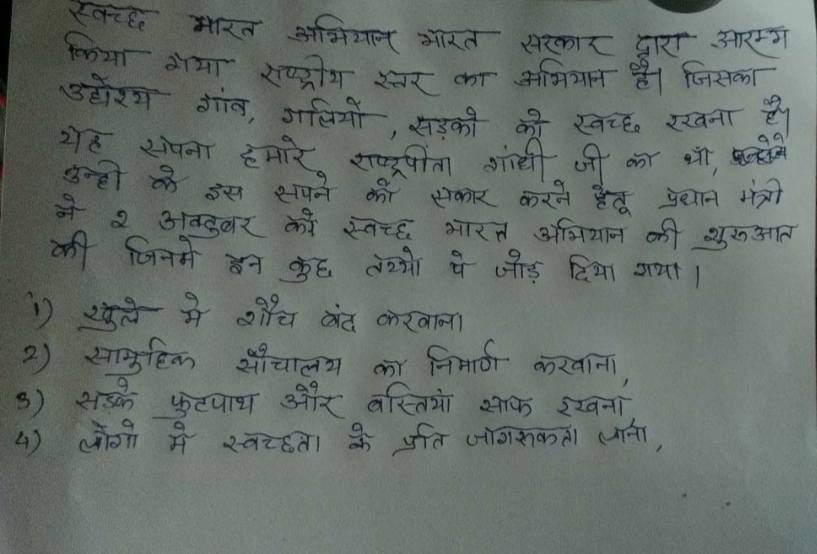 स्वच्छ भारत अभियान भारत सरकार द्वारा आरम्भ
किया गया राष्ट्रीय स्तर का अभियान है। जिसका
उद्येश्य गांव, गलियों, सड़को को स्वच्छ रखना है।
यह सपना हमारे राष्ट्रपीता गांधी जी का था,
उन्ही के इस सपने को सकार करने हेतू प्रधान मंत्री
ने २ अक्टुबर को स्वच्छ भारत अभियान की शुरूआत
की जिनमे इन कुछ तथ्यो पे जोड़ दिया गया।
1) खुले मे शौच बंद करवाना
2) सामुहिक सौचालय का निमार्ण करवाना,
3) सड़के फुटपाथ और वस्तियां साफ रखना,
4) लोगो मे स्वच्छता के प्रति जागरूकता लाना,